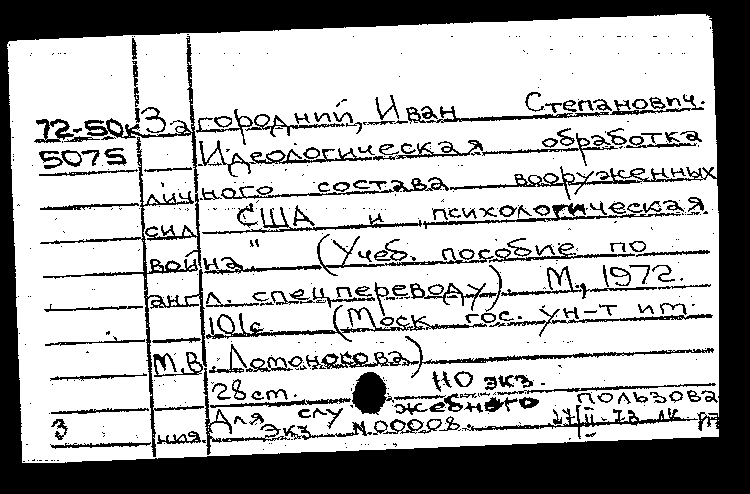 72-50к Загородний, Иван Степанович.
5075 Идеологическая обработка
личного состава вооруженных
сил США и „психологическая
война" (Учеб. пособие по
англ. спецпереводу). М., 1972.
101с (Моск гос. ун-т им.
М.В. Ломоносова)
28 cm. 110 экз.
Для служебного пользова
3 ния Экз N.00008. 27/II-73 ЛК